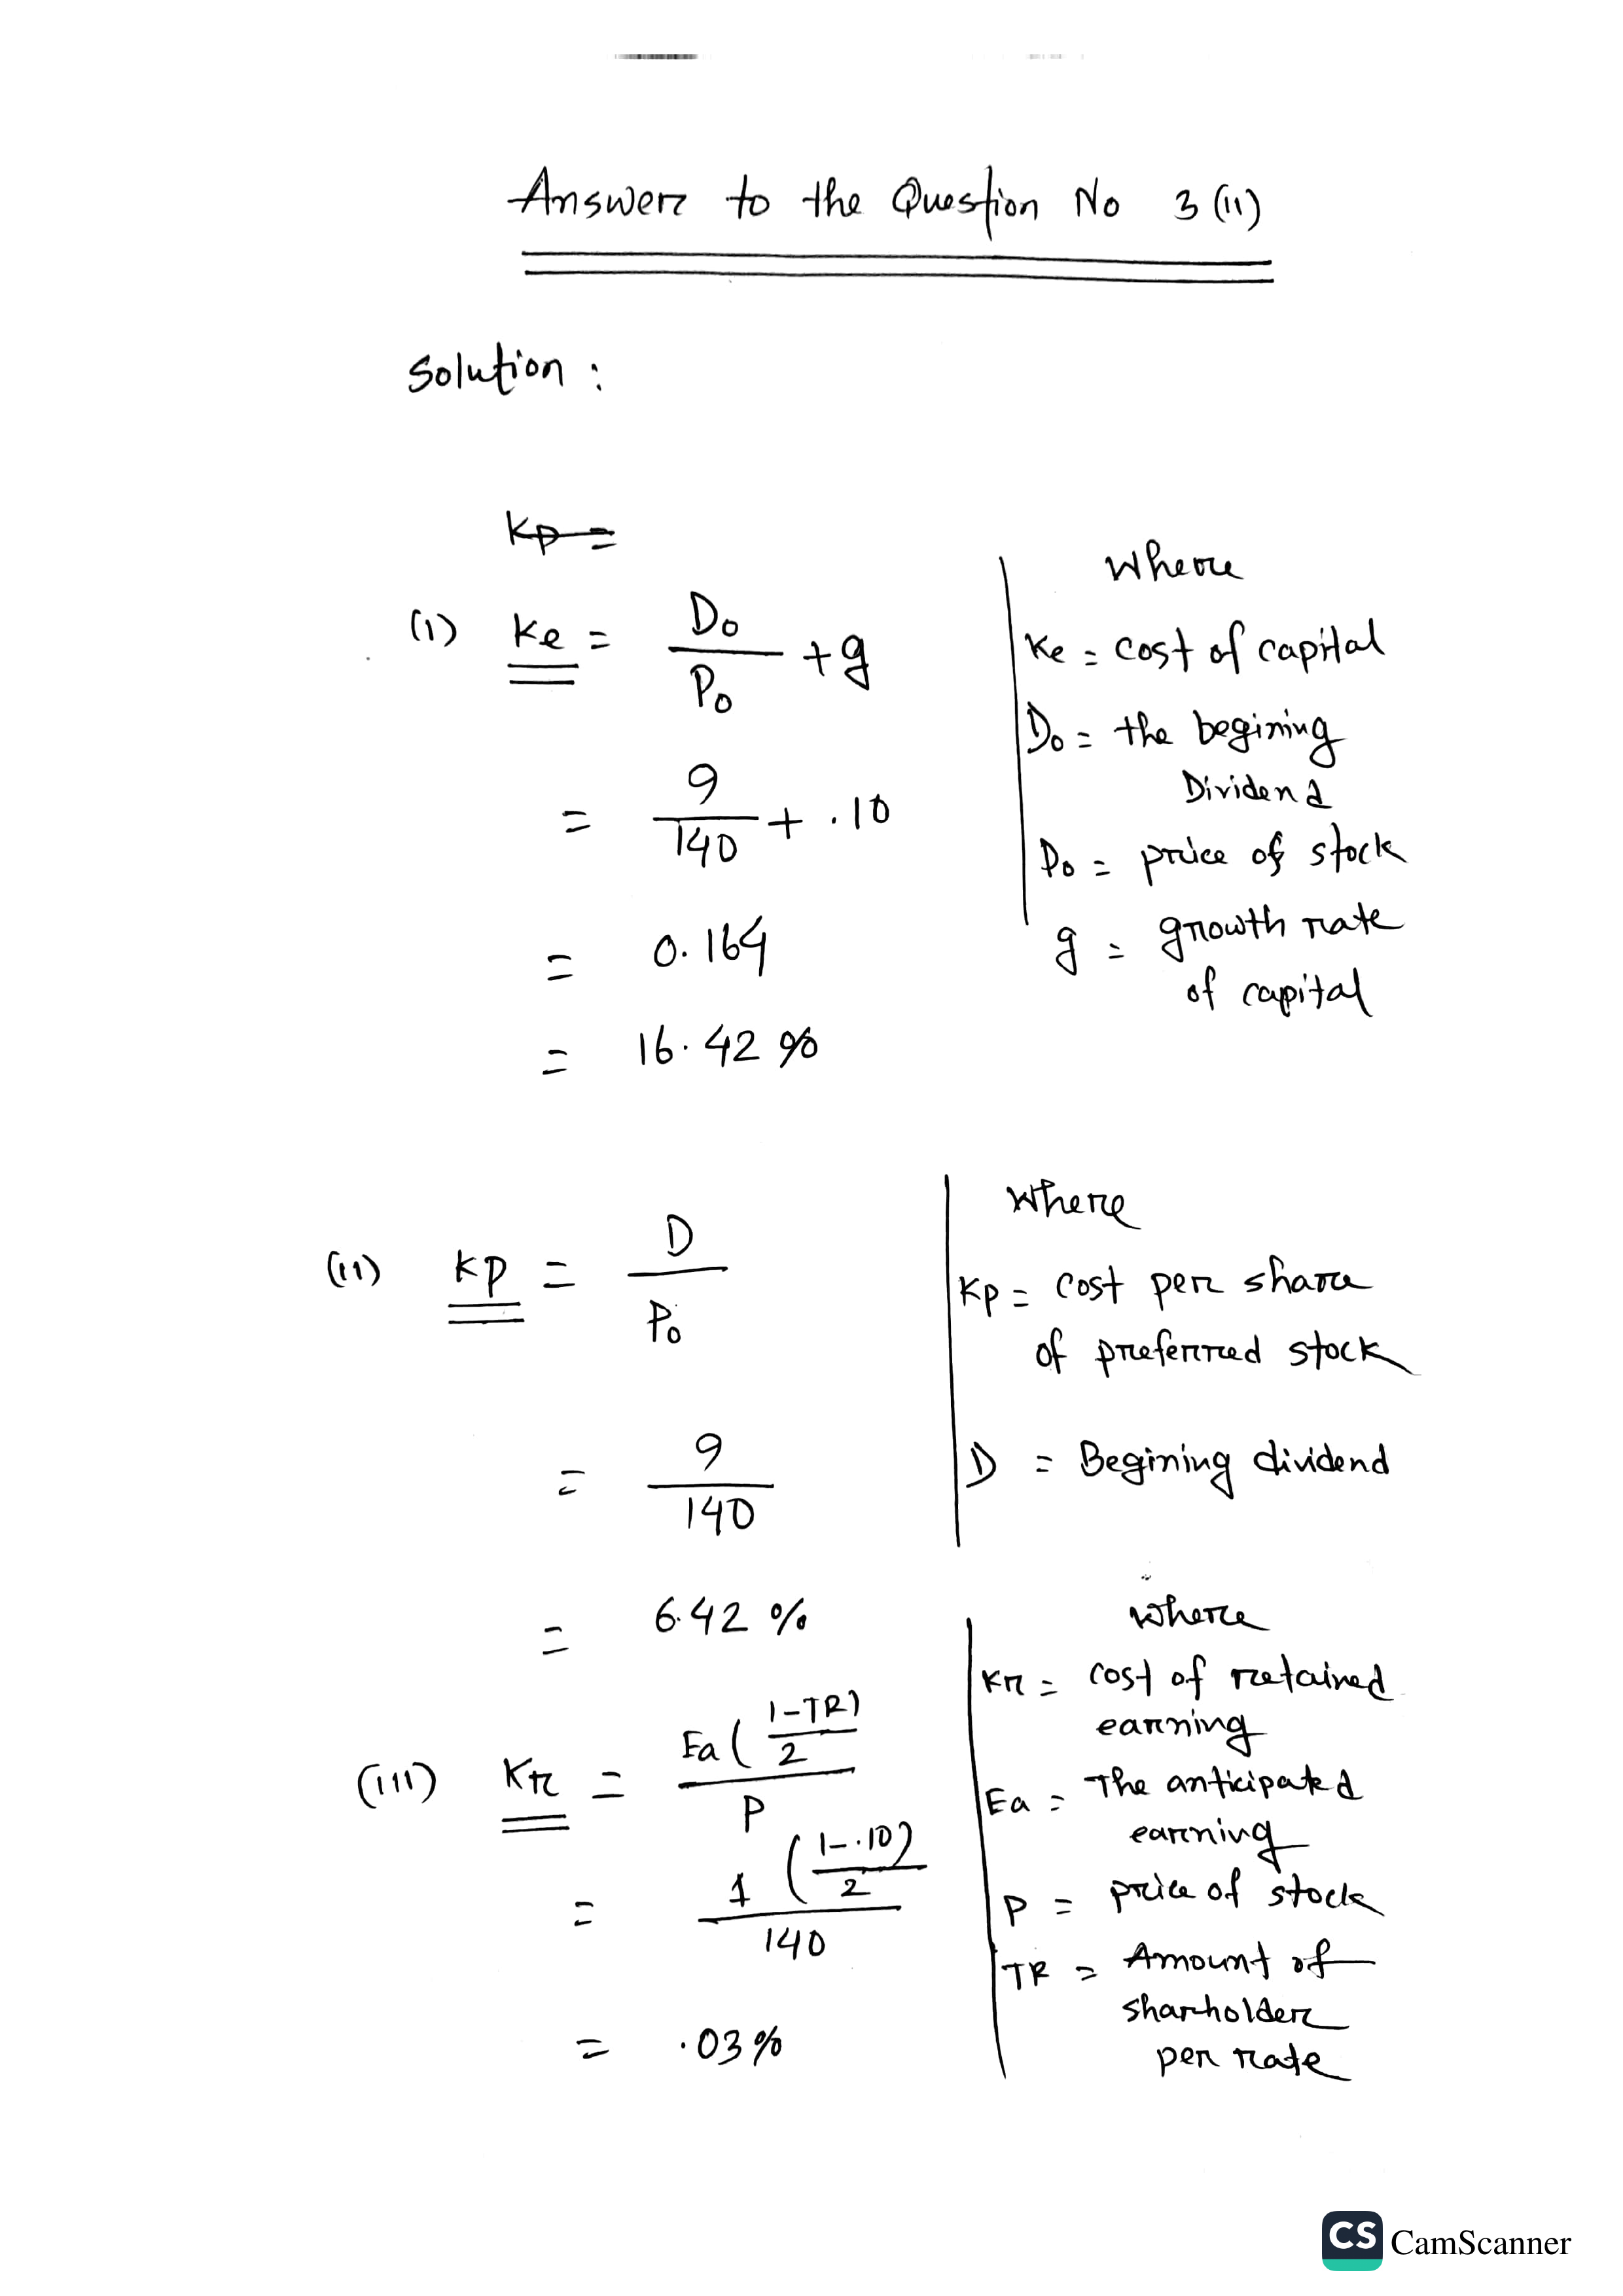 Answer to the Question No 3(ii)
Solution:
Kp =
(i) Ke = D₀/P₀ + g
= 9/140 + .10
= 0.164
= 16.42%
Where
Ke = cost of capital
D₀ = the begining
Dividend
P₀ = price of stock
g = growth rate
of capital
(ii) Kp = D/P₀
= 9/140
= 6.42%
Where
Kp = cost per share
of preferred stock
D = Begining dividend
(iii) Kr = Ea((1-TR)/2)/P
= 1((1-.10)/2)/140
= .03%
Where
Kr = cost of retained
earning
Ea = The anticipated
earning
P = price of stock
TR = Amount of
sharholder
per rate
CS CamScanner